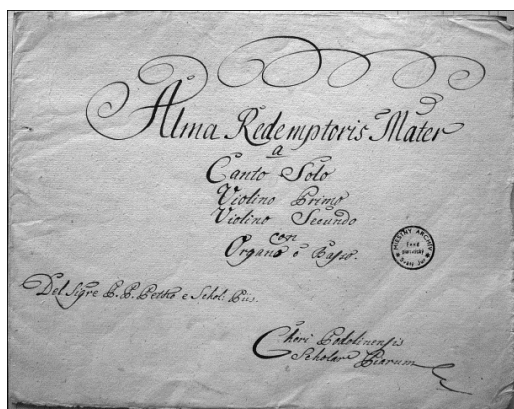 Alma Redemptoris Mater
a
Canto Solo
Violino Primo
Violino Secundo
con
Organo e Basso.
Del Sigre P. P. Pettko e Schol. Pus.
Chori Podolinensis
Scholar Piarum